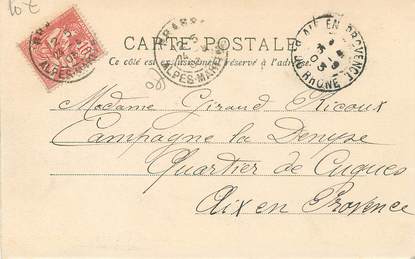 10 €
CARTE POSTALE
Ce côté est exclusivement réservé à l'adresse
ALPES-MARIT
ALPES-MARIT
AIX EN PROVENCE
DU RHONE
Madame Giraud Ricoux
Campagne la Denyse
Quartier de Cuques
Aix en Provence